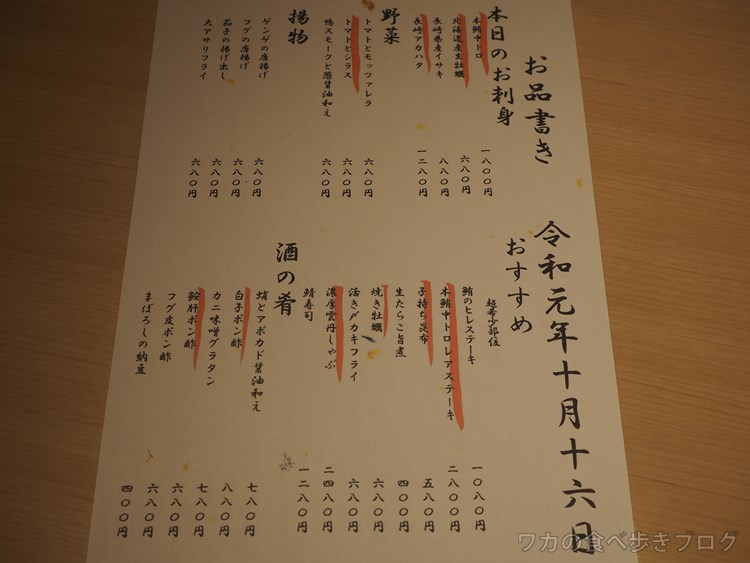 お品書き
本日のお刺身
本鮪中トロ 一八〇〇円
北海道産生牡蠣 六八〇円
長崎県産イサキ 八八〇円
長崎アカハタ 一二八〇円
野菜
トマトとモッツァレラ 六八〇円
トマトとシラス 六八〇円
鴨スモークと葱醤油和え 六八〇円
揚物
ゲンゲの唐揚げ 六八〇円
フグの唐揚げ 六八〇円
茄子の揚げ出し 六八〇円
大アサリフライ 六八〇円
令和元年十月十六日
おすすめ
超希少部位
鮪のヒレステーキ 一〇八〇円
本鮪中トロレアステーキ 二八〇〇円
子持ち昆布 五八〇円
生たらこ旨煮 四〇〇円
焼き牡蠣 六八〇円
活き〆カキフライ 六八〇円
濃厚雲丹しゃぶ 二四八〇円
鯖寿司 一二八〇円
酒の肴
蛸とアボカド醤油和え 七八〇円
白子ポン酢 八八〇円
カニ味噌グラタン 七八〇円
鮟肝ポン酢 六八〇円
フグ皮ポン酢 六八〇円
まぼろしの納豆 四〇〇円
ワカの食べ歩きブログ